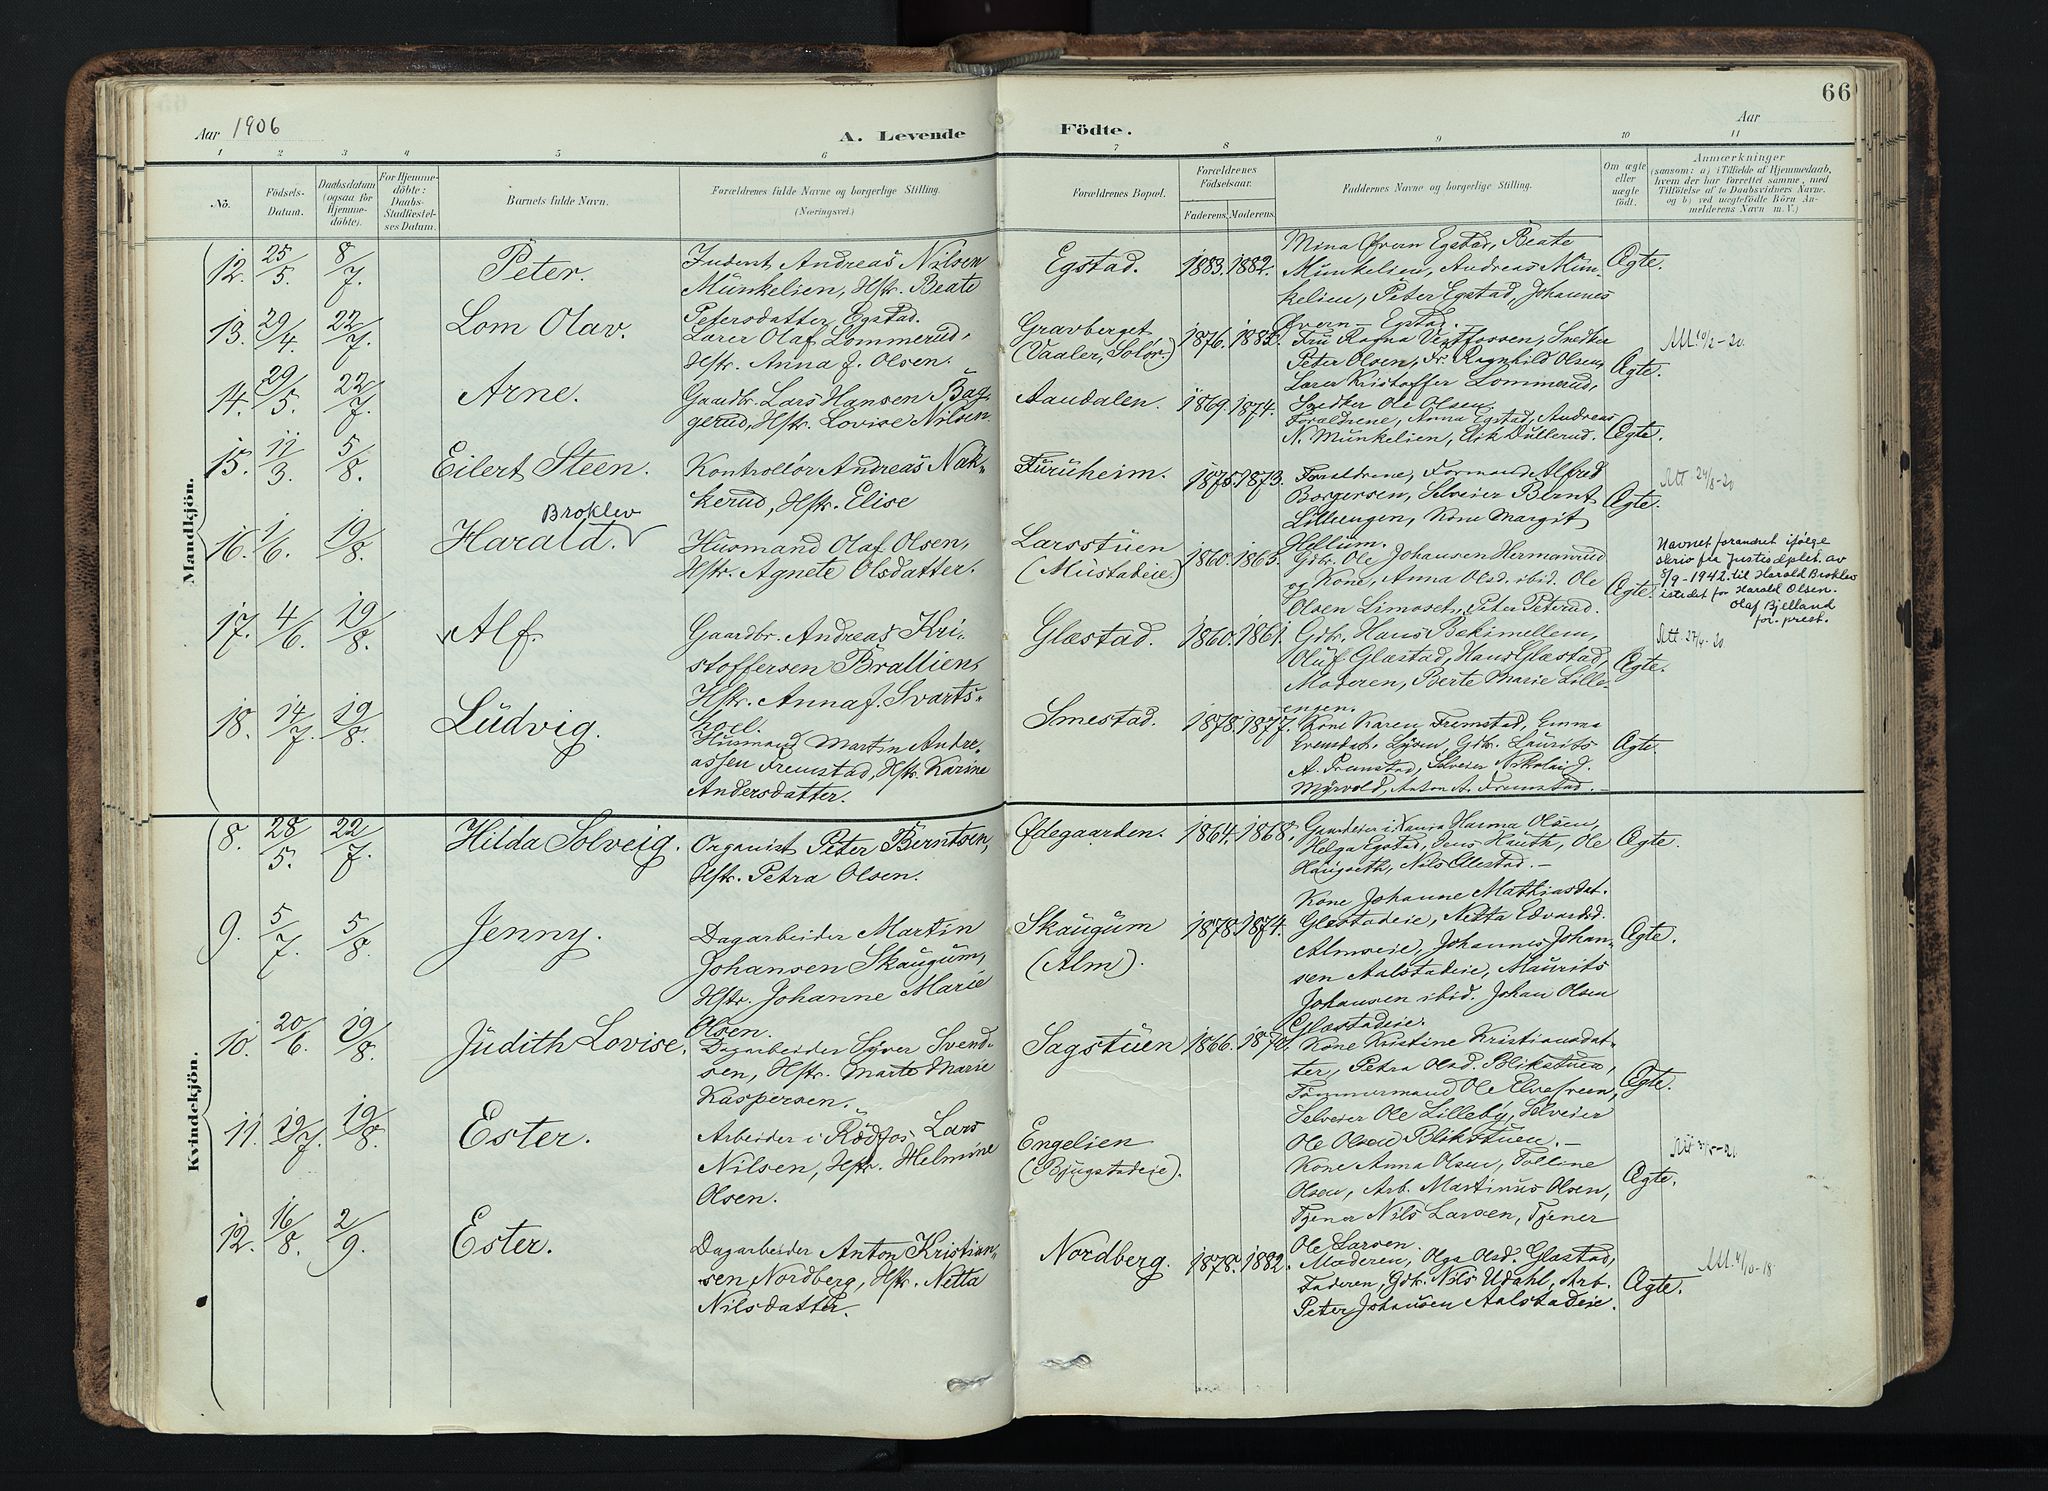 66
Aar 1906
A. Levende Födte.
Aar
1 2 3 4 5 6 7 8 9 10 11
No.
Födsels-Datum.
Daabsdatum (ogsaa for Hjemme-döbte).
For Hjemme-döbte: Daabs-Stadfæstel-ses Datum.
Barnets fulde Navn.
Forældrenes fulde Navne og borgerlige Stilling.
(Næringsvei.)
Forældrenes Bopæl.
Forældrenes Födselsaar.
Faderens. Moderens.
Faddernes Navne og borgerlige Stilling.
Om ægte eller uægte födt.
Anmærkninger
(saasom: a) i Tilfælde af Hjemmedaab,
hvem der har forrettet samme, med
Tilföielse af to Daabsvidners Navne.
og b) ved uægtefödte Börn An-
melderens Navn m. V.)
Mandkjön.
12. 25/5 8/7 Peter.
Andreas Nilsen
Munkelien, Hstr. Beate
Petersdatter Egstad.
Egstad. 1883. 1882.
Mina Øvern Egstad, Beate
Munkelien, Andreas Mün-
kelien, Peter Egstad, Johannes
Øvern-Egstad.
Ægte.
13. 29/4 22/7 Lom Olav.
Lærer Olaf Lommerud,
Hstr. Anna f. Olsen.
Gravberget
(Vaaler, Solør)
1876. 1882
Fru Ragna Vestfossen, Snedker
Peter Olsen, Fr. Ragnhild Olsen,
Lærer Kristoffer Lommerud,
Snedker Ole Olsen
Ægte.
Att. 10/2-20
14. 29/5 22/7 Arne.
Gaardbr. Lars Hansen Bag-
gerud, Hstr. Lovise Nilsen.
Aaudalen. 1869. 1874.
Forældrene, Anna Egstad, Andreas
N. Munkelien, Dullerud.
Ægte.
15. 11/3 5/8 Eilert Steen.
Kontrollør Andreas Nak-
kerud, Hstr. Elise
Furuheim. 1875. 1873.
Forældrene, Formand Alfred
Borgersen, Selveier Bernt
Lilleengen, Kone Margit
Hellum.
Ægte.
Att. 24/8-20
16. 1/6 19/8 Harald. Broklev
Husmand Olaf Olsen,
Hstr. Agnete Olsdatter.
Larsstuen
(Mustadeie)
1860. 1863.
Gdbr. Ole Johansen Hermanrud
og Kone, Anna Olsd. ibid. Ole
Olsen Limoset, Peter Peterud.
Ægte.
Navnet forandret ifølge
skriv fra Justisdeptet. av
8/9-1942 til Harold Broklev
istedet for Harald Olsen.
Olaf Bjelland
for. prest.
17. 4/6 19/8 Alf.
Gaardbr. Andreas Kri-
stoffersen Brallien,
Hstr. Anna f. Svarts-
hoel.
Glæstad. 1860. 1861.
Gdbr. Hans Bækimellem,
Oluf Glæstad, Hans Glæstad,
Moderen, Berte Marie Lille-
engen.
Ægte.
Att. 27/4-20
18. 14/7 19/8 Ludvig.
Husmand Martin Andre-
assen Fremstad, Hstr. Karine
Andersdatter.
Smestad. 1878. 1877.
Kone Karen Fremstad, Emma
Evensdat. Lysen, Gdbr. Laurits
A. Fremstad, Selveier Nikolai J.
Myrvold, Anton A. Fremstad.
Ægte.
Kvindekjön.
8. 28/5 22/7 Hilda Solveig.
Organist Peter Berntsen,
Hstr. Petra Olsen.
Ødegaarden. 1864. 1868.
Hanna Olsen,
Helga Egstad, Jens Hauth, Ole
Haugseth, Nils Ellestad.
Ægte.
9. 5/7 5/8 Jenny.
Dagarbeider Martin
Johansen Skaugum,
Hstr. Johanne Marie
Olsen.
Skaugum
(Alm).
1878. 1874.
Kone Johanne Mathiasdat.
Glæstadeie, Netta Edvardsd.
Almseie, Johannes Johan-
sen Aalstadeie, Maurits
Johansen ibid. Johan Olsen
Glæstadeie.
Ægte.
10. 20/6 19/8 Judith Lovise.
Dagarbeider Syver Svend-
sen, Hstr. Marte Marie
Kaspersen.
Sagstuen 1866.
Kone Kristine Kristiansdat-
ter, Petra Olsd. Blikstuen,
Tømmermand Ole Elvesveen,
Selveier Ole Lilleby, Selveier
Ole Olsen Blikstuen.
Ægte.
11. 19/7 19/8 Ester.
Arbeider i Rødfos Lars
Nilsen, Hstr. Helmine
Olsen.
Engelien
(Bjugstadeie).
Kone Anna Olsen, Tolline
Olsen, Arb. Martinus Olsen,
Tjener Nils Larsen, Tjener
Ole Larsen
Ægte.
12. 16/8 2/9 Ester.
Dagarbeider Anton Kristian-
sen Nordberg, Hstr. Netta
Nilsdatter.
Nordberg. 1878. 1882.
Moderen, Olga Olsd. Glæstad,
Faderen, Gdbr. Nils Udahl, Arb.
Peter Johansen Aalstadeie.
Ægte.
Att. 4/10-18